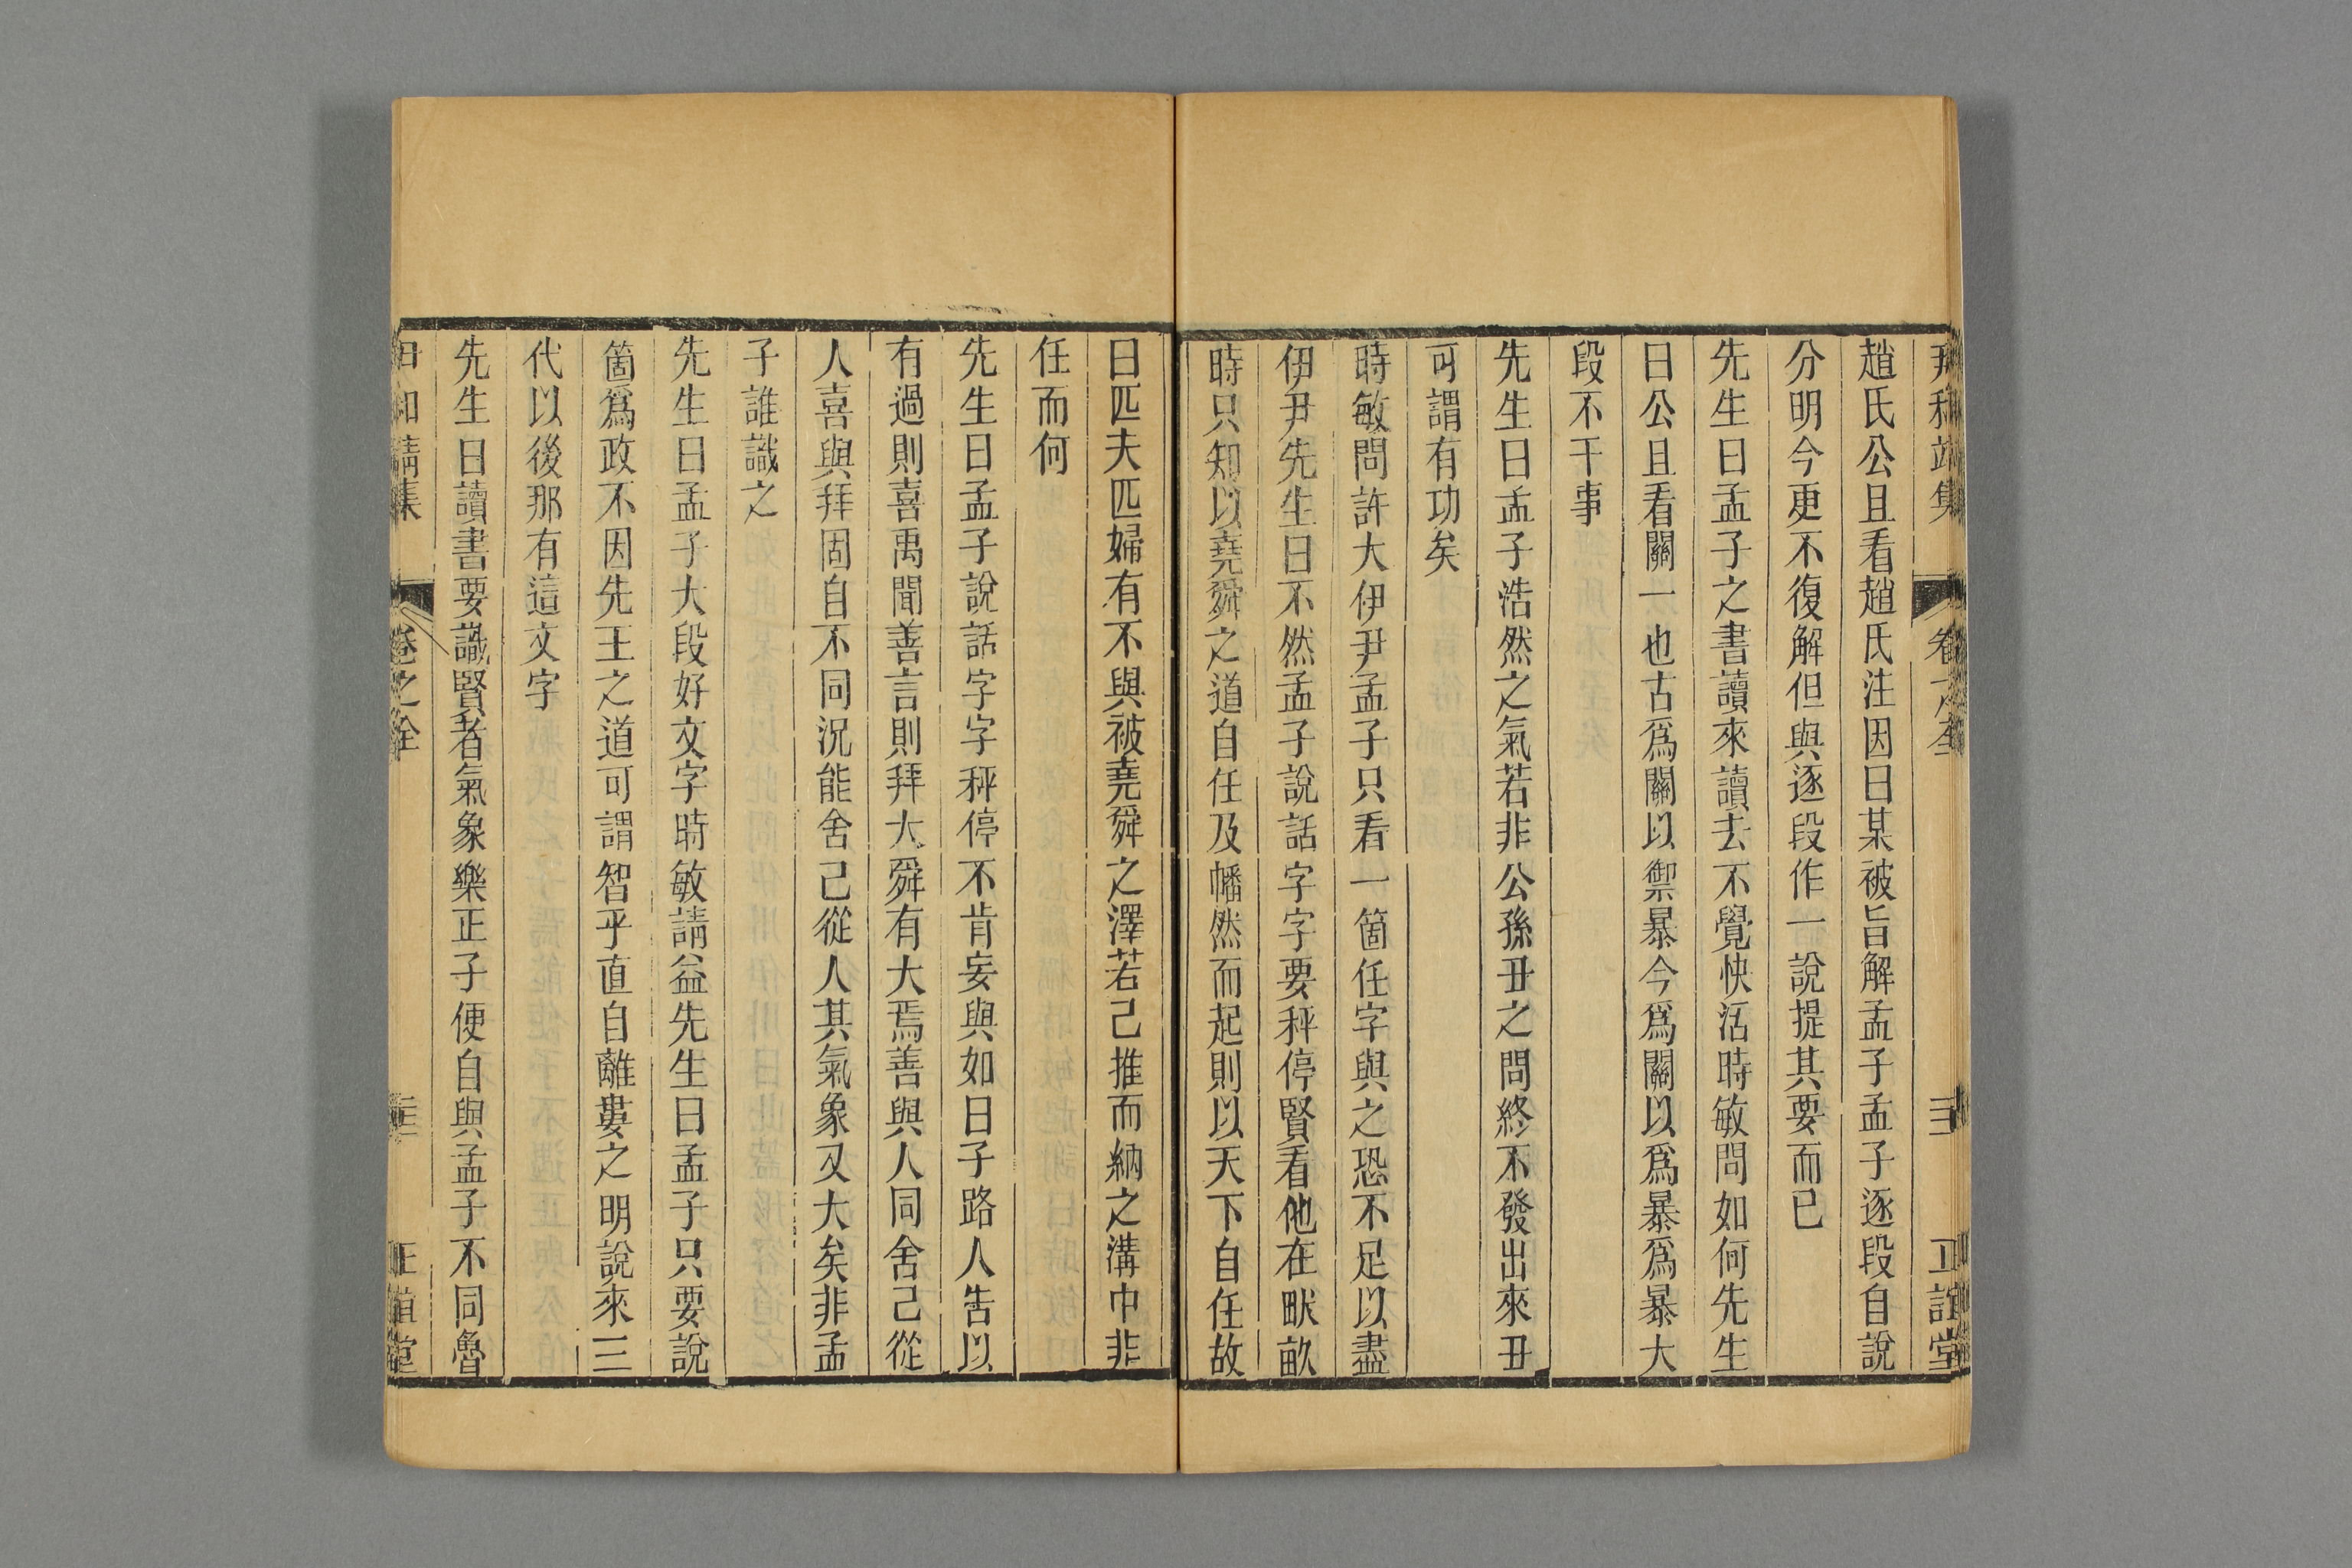 趙氏公且看趙氏注因曰某被旨解孟子孟子逐段自說
分明今更不復解但與逐段作一說提其要而已
先生曰孟子之書讀來讀去不覺快活時敏問如何先生
曰公且看關一也古爲關以禦暴今爲關以爲暴爲暴大
段不干事
先生曰孟子浩然之氣若非公孫丑之問終不發出來丑
可謂有功矣
時敏問許大伊尹孟子只看一箇任字與之恐不足以盡
伊尹先生曰不然孟子說話字字要秤停賢看他在畎畝
時只知以堯舜之道自任及幡然而起則以天下自任故
曰匹夫匹婦有不與被堯舜之澤若己推而納之溝中非
任而何
先生曰孟子說話字字秤停不肯妄與如曰子路人告以
有過則喜禹聞善言則拜大舜有大焉善與人同舍己從
人喜與拜固自不同況能舍己從人其氣象又大矣非孟
子誰識之
先生曰孟子大段好文字時敏請益先生曰孟子只要說
箇爲政不因先王之道可謂智乎直自離婁之明說來三
代以後那有這文字
先生曰讀書要識賢者氣象樂正子便自與孟子不同魯
和靖集 卷之全 正誼堂